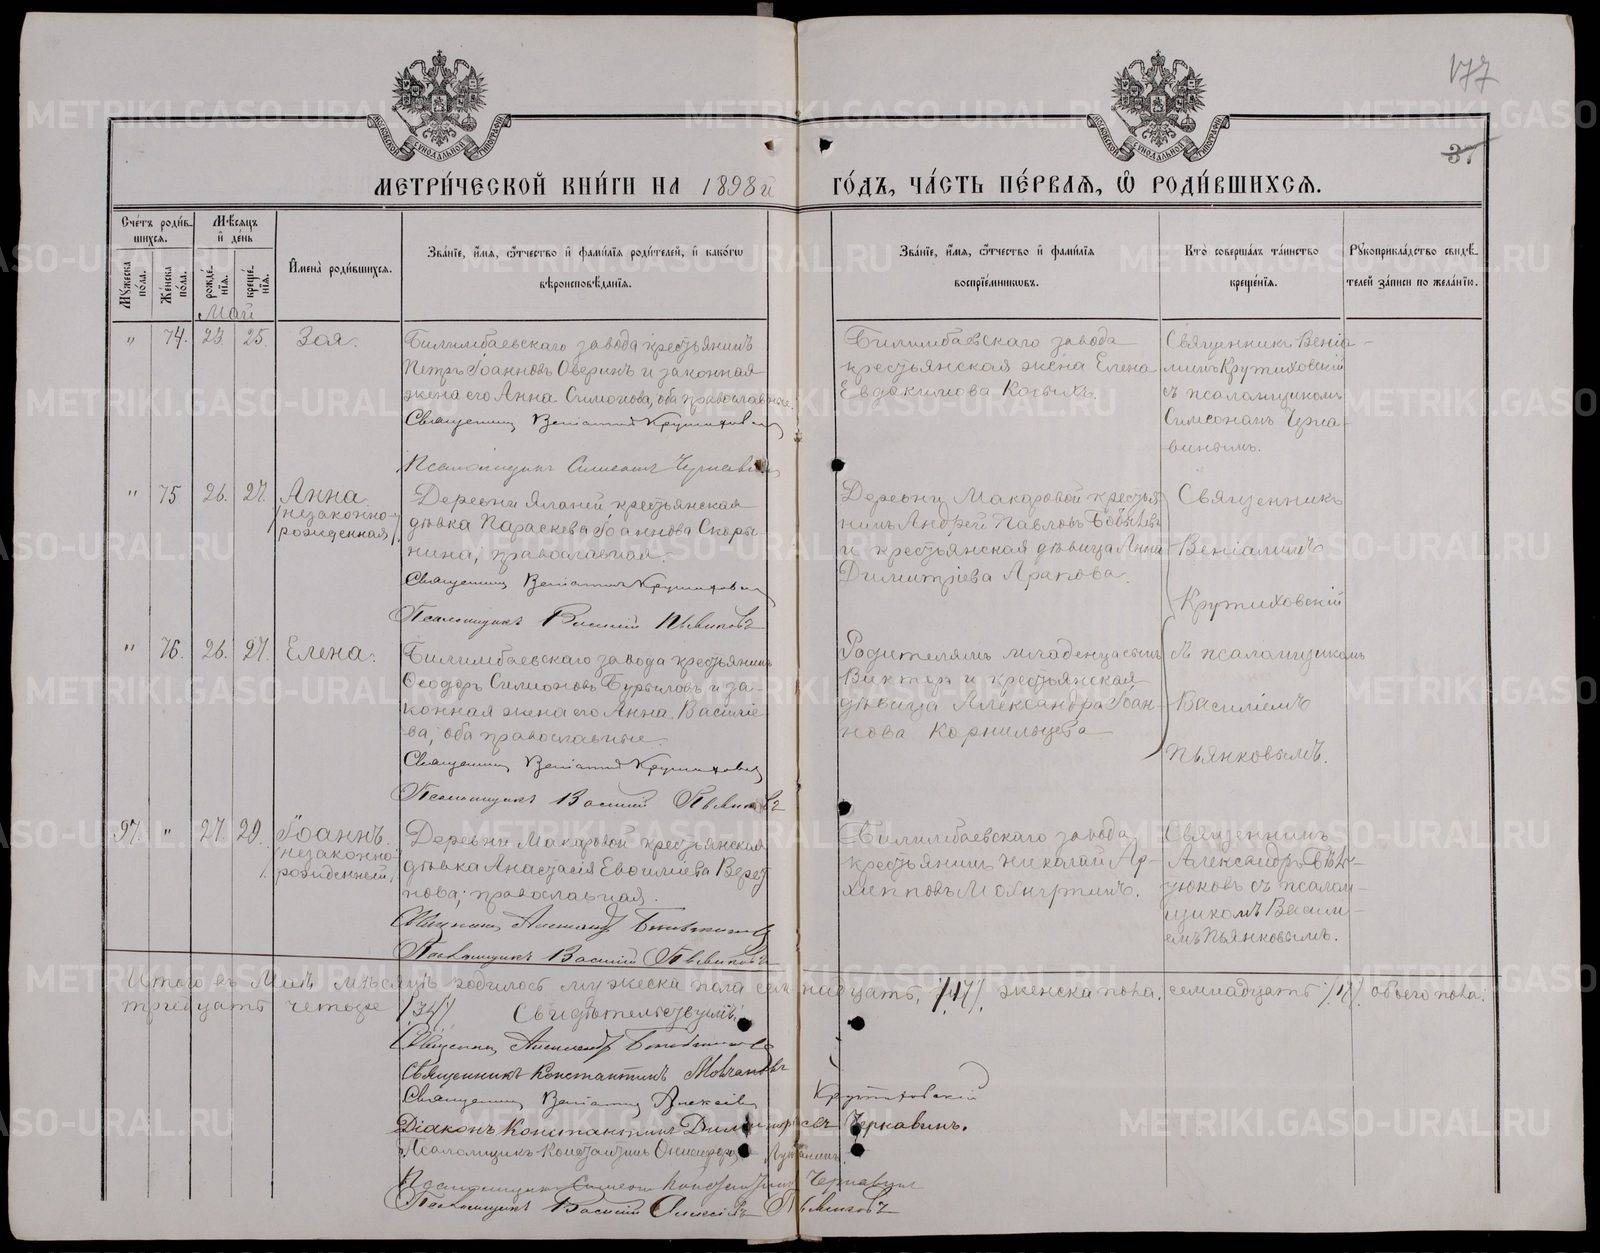 177
37
МЕТРИ́ЧЕСКОЙ КНИ́ГИ НА 1898й ГО́ДЪ, ЧА́СТЬ ПЕ́РВАЯ, Ѡ РОДИ́ВШИХСЯ.
Сче́тъ роди́вшихся.
Му́жеска по́ла.
Же́нска по́ла.
Мѣ́сяцъ и де́нь
рожде́нія.
креще́нія.
Имена̀ роди́вшихся.
Зва́ніе, и́мя, ѻ́тчество и фами́лія роди́телей, и како́гѡ
вѣроисповѣ́данія.
Зва́ніе, и́мя, ѻ́тчество и фами́лія
воспріе́мниковъ.
Кто̀ соверша́лъ та́инство
креще́нія.
Рукоприкла́дство свидѣ́телей за́писи по жела́нію.
Май
" 74. 23. 25. Зоя.
Билимбаевскаго завода крестьянинъ
Петръ Іоанновъ Оверинъ и законная
жена его Анна Симонова, оба православные.
Священникъ Веніаминъ Крутиховскій
Псаломщикъ Симеонъ Чернавинъ
Билимбаевскаго завода
крестьянская жена Елена
Евдокимова Косыхъ.
Священникъ Веніа-
минъ Крутиховскій
съ псаломщикомъ
Симеономъ Черна-
винымъ.
" 75 26. 27. Анна
/незаконно-
рожденная/.
Деревни Яланей крестьянская
дѣвка Параскева Іоаннова Скоры-
нина, православная.
Священникъ Веніаминъ Крутиховскій
Псаломщикъ Василій Пьянковъ
Деревни Макаровой крестья-
нинъ Андрей Павловъ
и крестьянская дѣвица Анна
Димитріева Арапова.
Священникъ
Веніаминъ
Крутиховскій
" 76. 26. 27. Елена.
Билимбаевскаго завода крестьянинъ
Ѳеодоръ Симіоновъ Бурыловъ и за-
конная жена его Анна Василіе-
ва, оба православные.
Священникъ Веніаминъ Крутиховскій
Псаломщикъ Василій Пьянковъ
Родителямъ младенца сынъ
Викторъ и крестьянская
дѣвица Александра Іоан-
нова Корнильцева
съ псаломщикомъ
Василіемъ
Пьянковымъ.
97. " 27. 29. Іоаннъ.
/незаконно-
рожденный/
Деревни Макаровой крестьянская
дѣвка Анастасія
православная.
Священникъ Александръ
Псаломщикъ Василій Пьянковъ
Билимбаевскаго завода
крестьянинъ Николай Ар-
хипповъ
Священникъ
Александръ
съ псалом-
щикомъ Васили-
емъ Пьянковымъ.
Итого въ Маѣ мѣсяцѣ родилось мужеска пола семнадцать /17/. женска пола семнадцать /17/ обоего пола
тридцать четыре /34/ Свидѣтельствуемъ:
Священникъ Александръ
Священникъ Константинъ
Священникъ Веніаминъ Алексѣевъ Крутиховскій
Діаконъ Константинъ Димитріевъ Чернавинъ.
Псаломщикъ Константинъ
Псаломщикъ Симеонъ Чернавинъ
Псаломщикъ Василій Алексіевъ Пьянковъ
METRIKI.GASO-URAL.RU